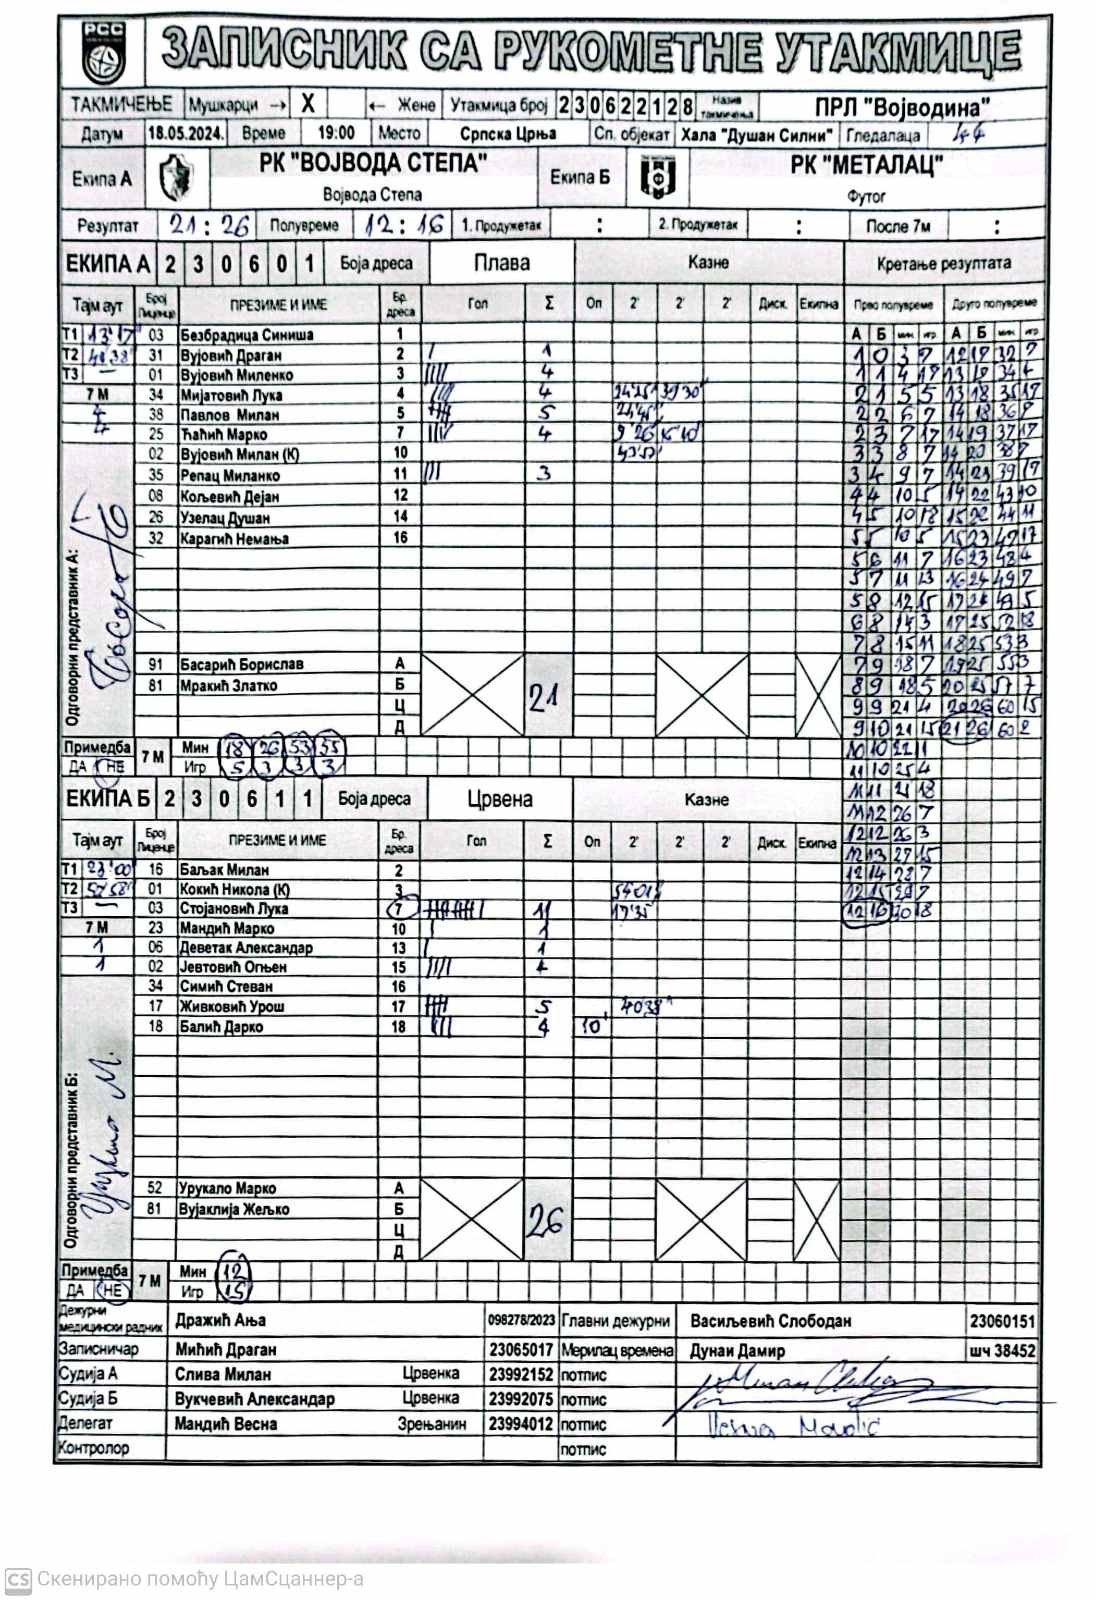 РСС
ЗАПИСНИК СА РУКОМЕТНЕ УТАКМИЦЕ
ТАКМИЧЕЊЕ Мушкарци → X ← Жене Утакмица број 2 3 0 6 2 2 1 2 8 Назив такмичења ПРЛ "Војводина"
Датум 18.05.2024. Време 19:00 Место Српска Црња Сп. објекат Хала "Душан Силни" Гледалаца
Екипа А РК "ВОЈВОДА СТЕПА" Екипа Б РК "МЕТАЛАЦ"
Војвода Степа Футог
Резултат 21 : 26 Полувреме 12 : 16 1. Продужетак : 2. Продужетак : После 7м :
ЕКИПА А 2 3 0 6 0 1 Боја дреса Плава Казне Кретање резултата
Тајм аут Број Лиценце ПРЕЗИМЕ И ИМЕ Бр. дреса Гол Σ Оп 2' 2' 2' Диск. Екипна Прво полувреме Друго полувреме
А Б мин игр А Б мин игр
Т1 13'17" 03 Безбрадица Синиша 1
Т2 31 Вујовић Драган 2 / 1
Т3 — 01 Вујовић Миленко 3 //// 4
7 М 34 Мијатовић Лука 4 //// 4 24'25" 39'30"
4 38 Павлов Милан 5 5
4 25 Ћаћић Марко 7 //// 4 9'26
02 Вујовић Милан (К) 10
35 Репац Миланко 11 /// 3
08 Кољевић Дејан 12
26 Узелац Душан 14
32 Карагић Немања 16
Одговорни представник А:
91 Басарић Борислав А
81 Мракић Златко Б 21
Ц
Д
1 0 3 7 12 17 32 7
1 1 4 17 13 18 34 4
2 1 5 5 13 18 35 17
2 2 6 7 14 18 36 9
2 3 7 17 14 19 37 17
3 3 8 7 14 20 38 7
3 4 9 7 14 21 39 17
4 4 10 5 14 22 43 10
4 5 10 18 15 22 44 11
5 5 10 5 15 23 47 17
5 6 11 7 16 23 48 4
5 7 11 13 16 24 49 7
5 8 12 15 17 24 49 5
6 8 14 3 17 25 52 18
7 8 15 11 18 25 53 3
7 9 18 7 19 25 55 3
8 9 18 5 20 25 57 7
9 9 21 4 20 26 60 15
9 10 21 15 21 26 60 2
10 10 22 11
11 10 25 4
11 11 25 18
11 12 26 7
12 12 26 3
12 13 27 15
12 14 28 7
12 15 29 7
12 16 30 18
Примедба 7 М Мин 18 26 53 55
ДА НЕ Игр 5 3 3 3
ЕКИПА Б 2 3 0 6 1 1 Боја дреса Црвена Казне
Тајм аут Број Лиценце ПРЕЗИМЕ И ИМЕ Бр. дреса Гол Σ Оп 2' 2' 2' Диск. Екипна
Т1 23'00" 16 Баљак Милан 2
Т2 52'58" 01 Кокић Никола (К) 3 54'01"
Т3 — 03 Стојановић Лука 7 11 17'35"
7 М 23 Мандић Марко 10 / 1
1 06 Деветак Александар 13 / 1
1 02 Јевтовић Огњен 15 //// 4
34 Симић Стеван 16
17 Живковић Урош 17 5 40'38"
18 Балић Дарко 18 //// 4 10'
Одговорни представник Б:
52 Урукало Марко А
81 Вујаклија Жељко Б 26
Ц
Д
Примедба 7 М Мин 12
ДА НЕ Игр 15
Дежурни медицински радник Дражић Ања 098278/2023 Главни дежурни Васиљевић Слободан 23060151
Записничар Мићић Драган 23065017 Мерилац времена Дунаи Дамир шч 38452
Судија А Слива Милан Црвенка 23992152 потпис
Судија Б Вукчевић Александар Црвенка 23992075 потпис
Делегат Мандић Весна Зрењанин 23994012 потпис Vesna Mandić
Контролор потпис
CS Скенирано помоћу ЦамСцаннер-а